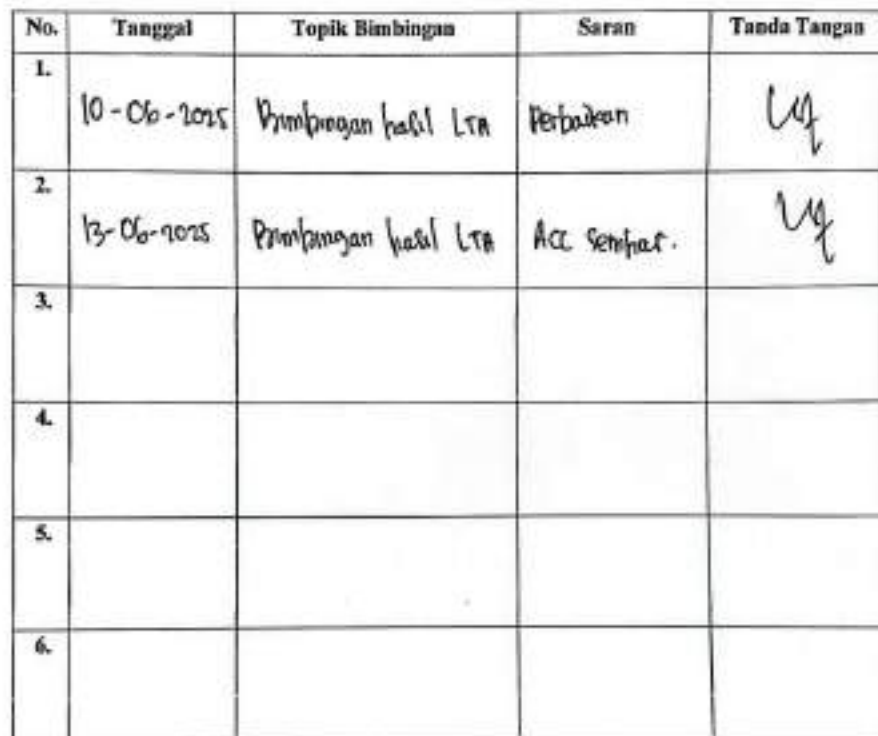 No. Tanggal Topik Bimbingan Saran Tanda Tangan
1.
10-06-2025 Bimbingan hasil LTA Perbaikan
2.
13-06-2025 Bimbingan hasil LTA ACC Semhas.
3.
4.
5.
6.